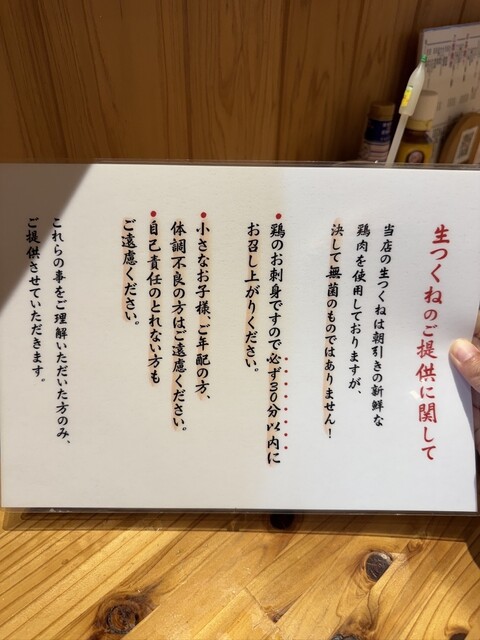 生つくねのご提供に関して
当店の生つくねは朝引きの新鮮な
鶏肉を使用しておりますが、
決して無菌のものではありません！
●鶏のお刺身ですので必ず30分以内に
お召し上がりください。
●小さなお子様、ご年配の方、
体調不良の方はご遠慮ください。
●自己責任のとれない方も
ご遠慮ください。
これらの事をご理解いただいた方のみ、
ご提供させていただきます。